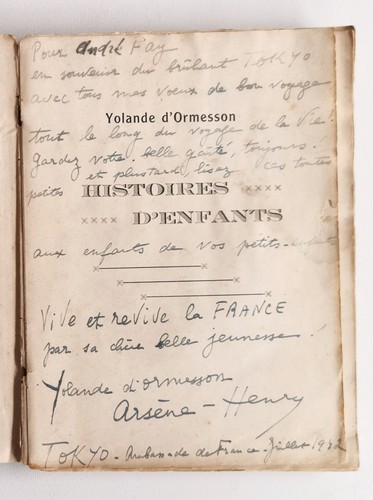 Pour André Fay
en souvenir du brûlant TOKYO
avec tous mes voeux de bon voyage
Yolande d'Ormesson
tout le long du voyage de la Vie!
Gardez votre belle gaîté, toujours.
et plus tard, lisez ces toutes
petites HISTOIRES
D'ENFANTS
aux enfants de vos petits-enfants
Vive et revive la FRANCE
par sa chère belle jeunesse!
Yolande d'ormesson
Arsène-Henry
TOKYO - Ambassade de France - Juillet 1942